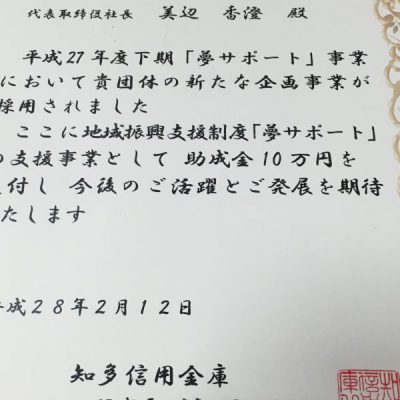 代表取締役社長 美辺 香澄 殿
平成27年度下期「夢サポート」事業
において貴団体の新たな企画事業が
採用されました
ここに地域振興支援制度「夢サポート」
の支援事業として 助成金10万円を
付し 今後のご活躍とご発展を期待
たします
平成28年2月12日
知多信用金庫